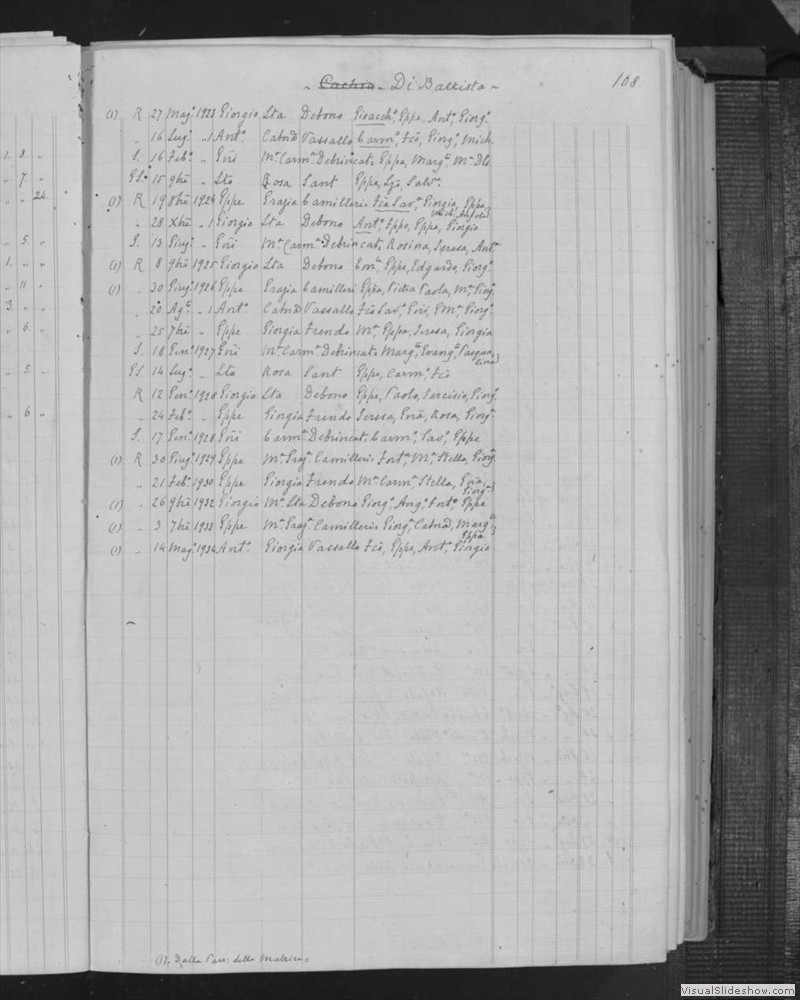 ~ Cachia - Di Battista ~ 108.
(1) R 27 Mag.º 1923 Giorgio Sta Debono Gioacch.º, Eppe, Ant.º, Giorg.º
„ 16 Lug.º „ 1 Ant.º Catnd Vassallo Carm.º, Fcõ, Giorg.º, Mich.
S. 16 Feb.º „ Gvñi M.ª Carm.ª Debrincat. Eppa, Marg.ª, M.ª Dls
1. 8. „
GS. 15 9bre „ Sto Rosa Sant Eppa, Salv.ª
„ 7. „
(1) R 19 8bre 1924 Eppe Grazia Camilleri Fcõ Sav.º, Giorgia, Eppa,
„ „ 24.
„ 28 Xbre „ 1 Giorgio Sta Debono Ant.º, Eppe, Giorgio
S. 13 Giug.º „ Gvñi M.ª Carm.ª Debrincat. Rosina, Teresa, Ant.ª
„ 5. „
(1) R 8 9bre 1925 Giorgio Sta Debono Em.º, Eppe, Edgardo, Giorg.º
1. „ „
(1) „ 30 Giug.º 1926 Eppe Grazia Camilleri Eppa, Paola, M.ª, Giorg.
„ 11. „
„ 20 Ag.º „ 1 Ant.º Catnd Vassallo Fcõ Sav.º, Gvñi, Giorg.º
3. „ „
„ 25 7bre „ Eppe Giorgia Frendo M.ª, Eppa, Teresa, Giorgia
„ 6. „
S. 18 Gen.º 1927 Gvñi M.ª Carm.ª Debrincat. Marg.ª, Evang.ª,
GS. 14 Lug.º „ Sto Rosa Sant Eppe, Carm.º, Fcõ
„ 5. „
R 12 Gen.º 1928 Giorgio Sta Debono Eppe, Paolo, Tarcisio, Giorg.º
„ 24 Feb.º „ Eppe Giorgia Frendo Teresa, Rosa, Giorg.ª
„ 6 „
S. 17 Gen.º 1928 Gvñi Carm.ª Debrincat. Carm.º, Sav.º, Eppe
(1) R 30 Giug.º 1929 Eppe M.ª Graz.ª Camilleri Fort.ª, M.ª Stella, Giorg.ª
„ 21 Feb.º 1930 Eppe Giorgia Frendo M.ª Carm.ª, Stella,
Giorg.ª
(1) „ 26 9bre 1932 Giorgio M.ª Sta Debono Giorg.º, Ang.º, Fort.º, Eppe
(1) „ 3 7bre 1933 Eppe M.ª Graz.ª Camilleri Giorg.ª, Catnd, Marg.ª,
Eppa
(1) „ 14 Mag.º 1934 Ant.º Giorgia Vassallo Fcõ, Eppe, Ant.º, Giorgio
(1). Dalla Parr: della Matrice =
VisualSlideshow.com